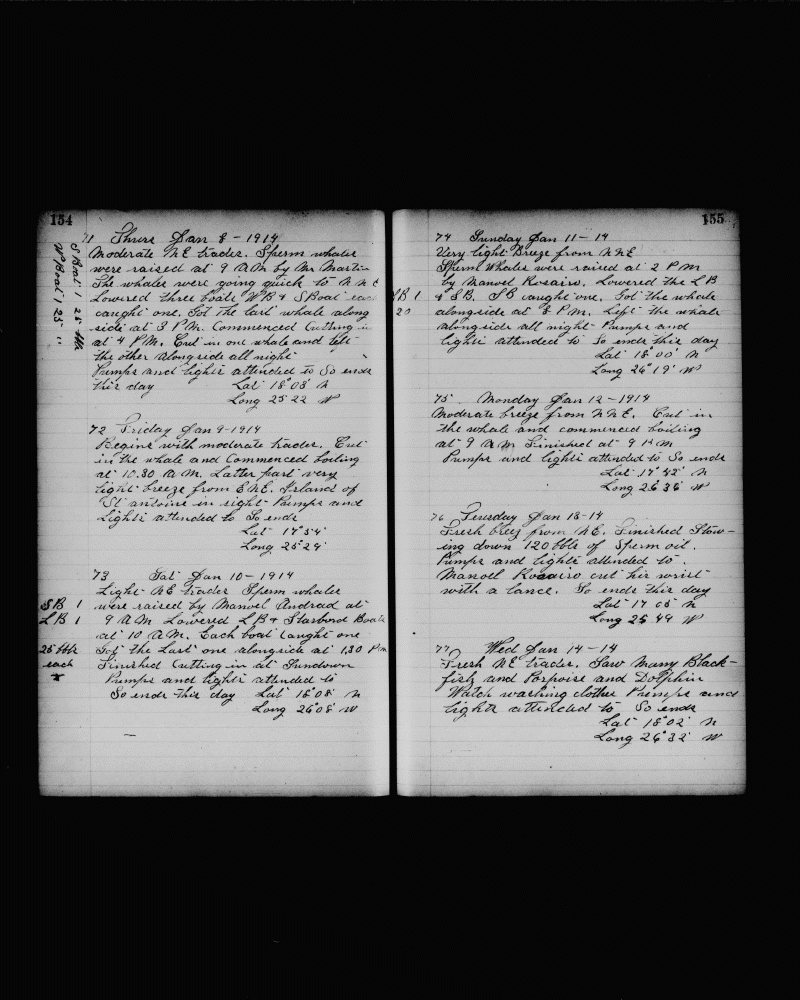 154
71 Thurs Jan 8 - 1914
S Boat 1 25 bbls
W Boat 1 25 "
Moderate NE trades. Sperm whales
were raised at 9 A M by Mr Martin
The whales were going quick to N N E
Lowered three boats WB & S Boat each
caught one. Got the last whale along
side at 3 P.M. Commenced Cutting in
at 4 P.M. Cut in one whale and left
the other alongside all night
Pumps and lights attended to So ends
this day Lat 18°03' N
Long 25 22 W
72 Friday Jan 9-1914
Begins with moderate trades. Cut
in the whale and Commenced boiling
at 10.30 A.M. Latter part very
light breeze from ENE. Island of
St antoine in sight Pumps and
Lights attended to So ends
Lat 17°54'
Long 25°29'
73 Sat Jan 10 - 1914
Light NE trades Sperm whales
SB 1 were raised by Manuel Andrad at
LB 1 9 A M Lowered LB & Starbord Boats
at 10 A.M. Each boat caught one
25 bbls Got the Last one alongside at 1.30 P m
each Finished Cutting in at Sundown
Pumps and lights attended to
So ends this day Lat 18°08' N
Long 26°08' W
155
74 Sunday Jan 11 - 14
Very light Breeze from NNE
Sperm Whales were raised at 2 P M
by Manuel Rosairo. Lowered the LB
SB 1 & SB. SB caught one. Got the whale
20 alongside at 5 P M. Left the whale
alongside all night Pumps and
lights attended to So ends this day
Lat 18°00' N
Long 26°19' W
75 Monday Jan 12 - 1914
Moderate breeze from NNE. Cut in
the whale and commenced boiling
at 9 A M Finished at 9 P M
Pumps and lights attended to So ends
Lat 17°42' N
Long 26 36' W
76 Teusday Jan 13 - 14
Fresh breez from NE. Finished Stow-
ing down 120 bbls of Sperm oil.
Pumps and lights attended to.
Manoel Rosairo cut his wrist
with a lance. So ends this day
Lat 17 05' N
Long 25 49' W
77 Wed Jan 14 - 14
Fresh NE trades. Saw Many Black-
fish and Porpoise and Dolphin
Watch washing clothes Pumps and
lights attended to So ends
Lat 18°02' N
Long 26°32' W